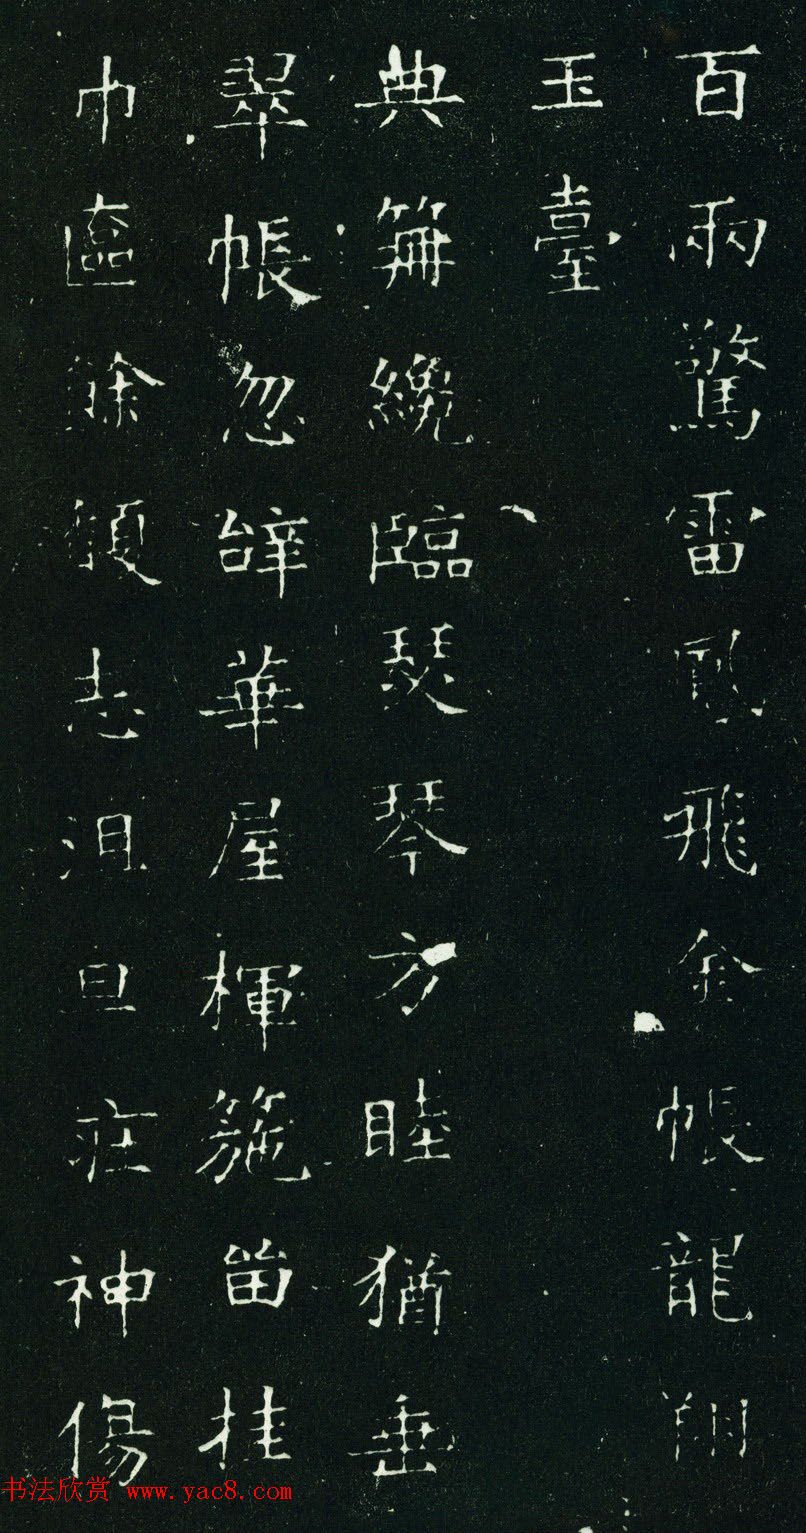 百兩驚雷鳳飛金帳龍翔
玉臺
典筭纔臨瑟琴方睦猶垂
翠帳忽辞華屋楎箷留挂
巾匳餘鏡志沮旦庄神傷
书法欣赏 www.yac8.com